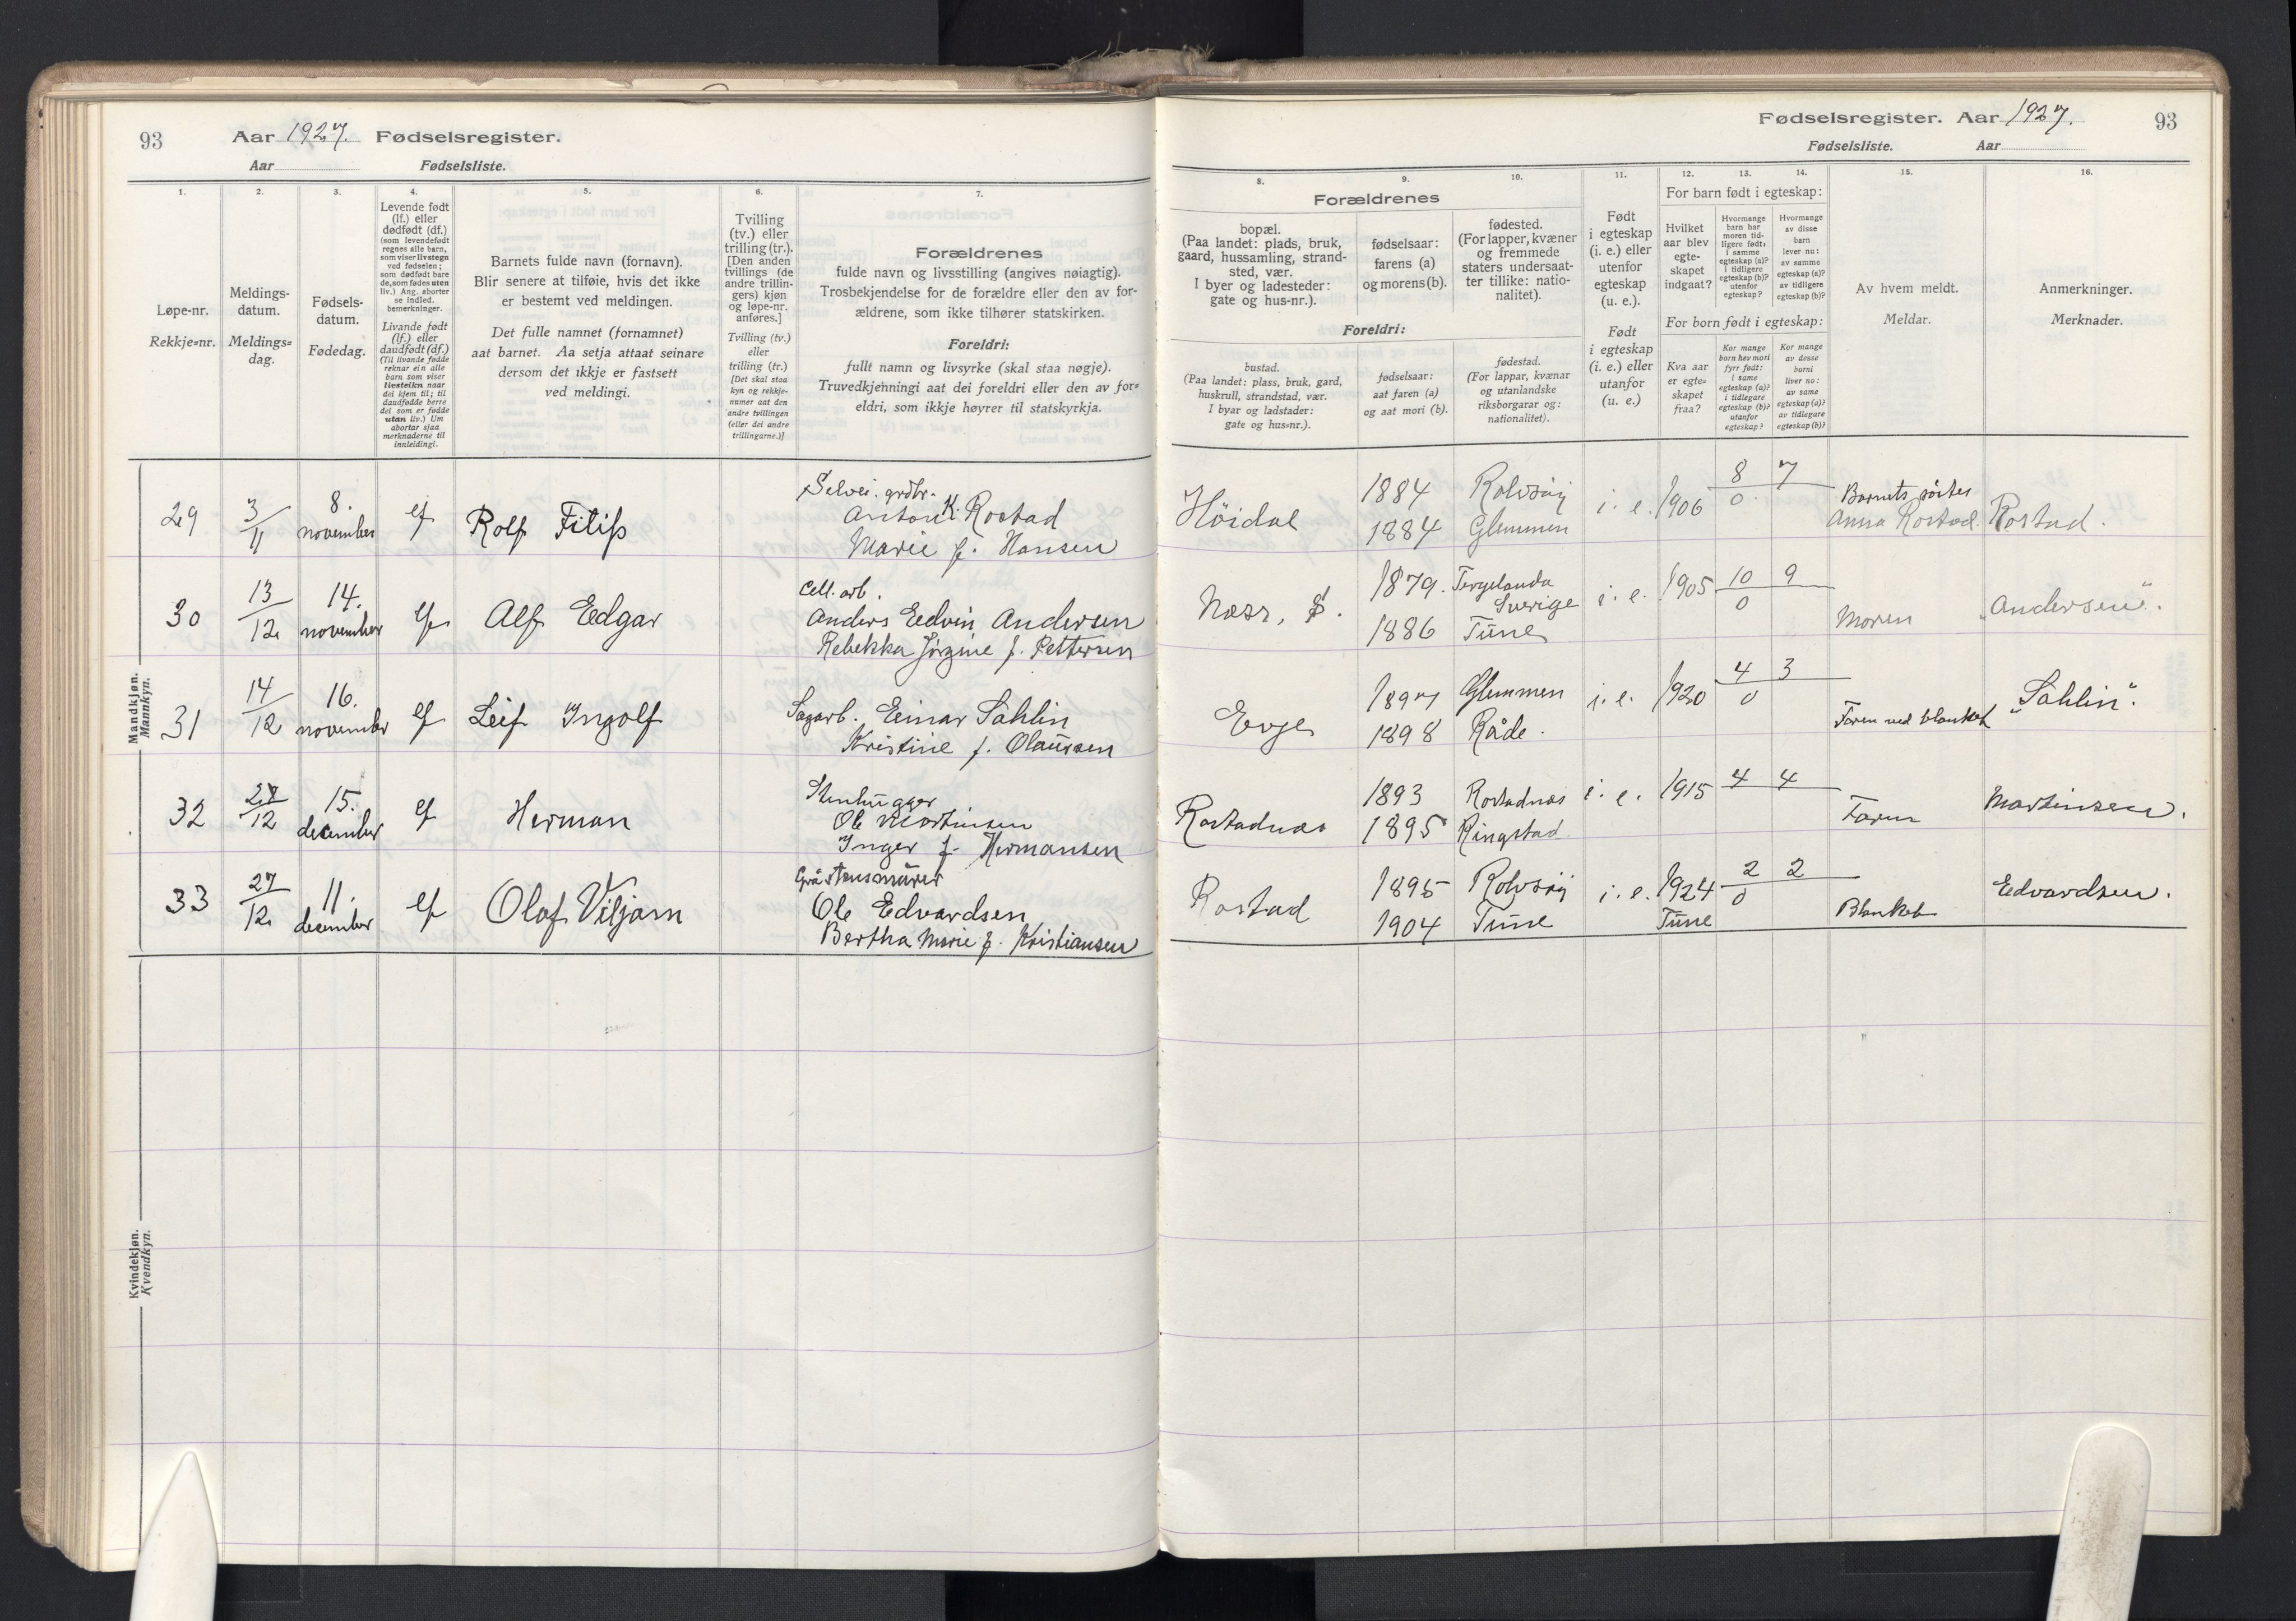 93
Aar 1927. Fødselsregister.
Aar Fødselsliste.
1.
2.
3.
4.
5.
6.
7.
Løpe-nr.
Rekkje=nr.
Meldings-
datum.
Meldings=
dag.
Fødsels-
datum.
Fødedag.
Levende født
(lf.) eller
dødfødt (df.)
(som levendefødt
regnes alle barn,
som viser livstegn
ved fødselen;
som dødfødt bare
de, som fødes uten
liv.) Ang. aborter
se indled.
bemerkninger.
Livande født
(lf.) eller
daudfødt (df.)
(Til livande fødde
reknar ein alle
barn som viser
livsteikn naar
dei kjem til; til
daudfødde berre
dei som er fødde
utan liv.) Um
abortar sjaa
merknaderne til
innleidingi.
Barnets fulde navn (fornavn).
Blir senere at tilføie, hvis det ikke
er bestemt ved meldingen.
Det fulle namnet (fornamnet)
aat barnet. Aa setja attaat seinare
dersom det ikkje er fastsett
ved meldingi.
Tvilling
(tv.) eller
trilling (tr.).
[Den anden
tvillings (de
andre trillin-
gers) kjøn
og løpe-nr.
anføres.]
Tvilling (tv.)
eller
trilling (tr.)
[Det skal staa
kyn og rekkje-
numer aat den
andre tvillingen
(eller dei andre
trillingarne.)]
Forældrenes
fulde navn og livsstilling (angives nøiagtig).
Trosbekjendelse for de forældre eller den av for-
ældrene, som ikke tilhører statskirken.
Foreldri:
fullt namn og livsyrke (skal staa nøgje).
Truvedkjenningi aat dei foreldri eller den av for=
eldri, som ikkje høyrer til statskyrkja.
Mandkjøn.
Mannkyn.
29 3/11 8. november lf Rolf Filip
Selvei. grdbr.
Anton K. Rostad
Marie f. Hansen
30 13/12 14. november lf Alf Edgar
Cell. arb.
Anders Edvin Andersen
Rebekka Jörgine f. Pettersen
31 14/12 16. november lf Leif Ingolf
Sagarb. Einar Sahlin
Kristine f. Olaussen
32 12 15. december lf Herman
Stenhugger
Ole Martinsen
Inger f. Hermansen
33 27/12 11. december lf Olaf Viljam
Gråstensmurer
Ole Edvardsen
Bertha Marie f. Kristiansen
Kvindekjøn.
Kvendkyn.
Fødselsregister. Aar 1927. 93
Fødselsliste. Aar
8.
9.
10.
11.
12.
13.
14.
15.
16.
Forældrenes
bopæl.
(Paa landet: plads, bruk,
gaard, hussamling, strand-
sted, vær.
I byer og ladesteder:
gate og hus-nr.).
fødselsaar:
farens (a)
og morens (b).
fødested.
(For lapper, kvæner
og fremmede
staters undersaat-
ter tillike: natio-
nalitet).
Foreldri:
bustad.
(Paa landet: plass, bruk, gard,
huskrull, strandstad, vær.
I byar og ladstader:
gate og hus=nr.).
fødselsaar:
aat faren (a)
og aat mori (b).
fødestad.
(For lappar, kvænar
og utanlandske
riksborgarar og:
nationalitet).
Født
i egteskap
(i. e.) eller
utenfor
egteskap
(u. e.).
Født
i egteskap
(i. e.) eller
utanfor
(u. e.)
For barn født i egteskap:
Hvilket
aar blev
egte-
skapet
indgaat?
Hvormange
barn har
moren tid-
ligere født:
i samme
egteskap (a)?
i tidligere
egteskap (b)?
utenfor
egteskap?
Hvormange
av disse
barn
lever nu:
av samme
egteskap (a)?
av tidligere
egteskap (b)?
For born født i egteskap:
Kva aar
er egte=
skapet
fraa?
Kor mange
born hev mori
fyrr født:
i same
egteskap (a)?
i tidlegare
egteskap (b)?
utanfor
egteskap?
Kor mange
av desse
borni
liver no:
av same
egteskap (a)?
av tidlegare
egteskap (b)?
Av hvem meldt.
Meldar.
Anmerkninger.
Merknader.
Höidal 1884 Rolvsöy i. e. 1906 8 7
1884 Glemmen 0
Barnets söster
Anna Rostad. Rostad.
Næss, S. 1879. Tergelanda
Sverige i. e. 1905 10 9
0
1886 Tune Moren "Andersen".
Evje 1897 Glemmen i. e. 1920 4 3
0
1898 Råde. Faren ved blanket "Sahlin".
Rostadnæs 1893 Rostadnæs i. e. 1915 4 4
1895 Ringstad. Faren Martinsen.
Rostad 1895 Rolvsöy i. e. 1924 2 2
0
1904 Tune Tune Blanket Edvardsen.